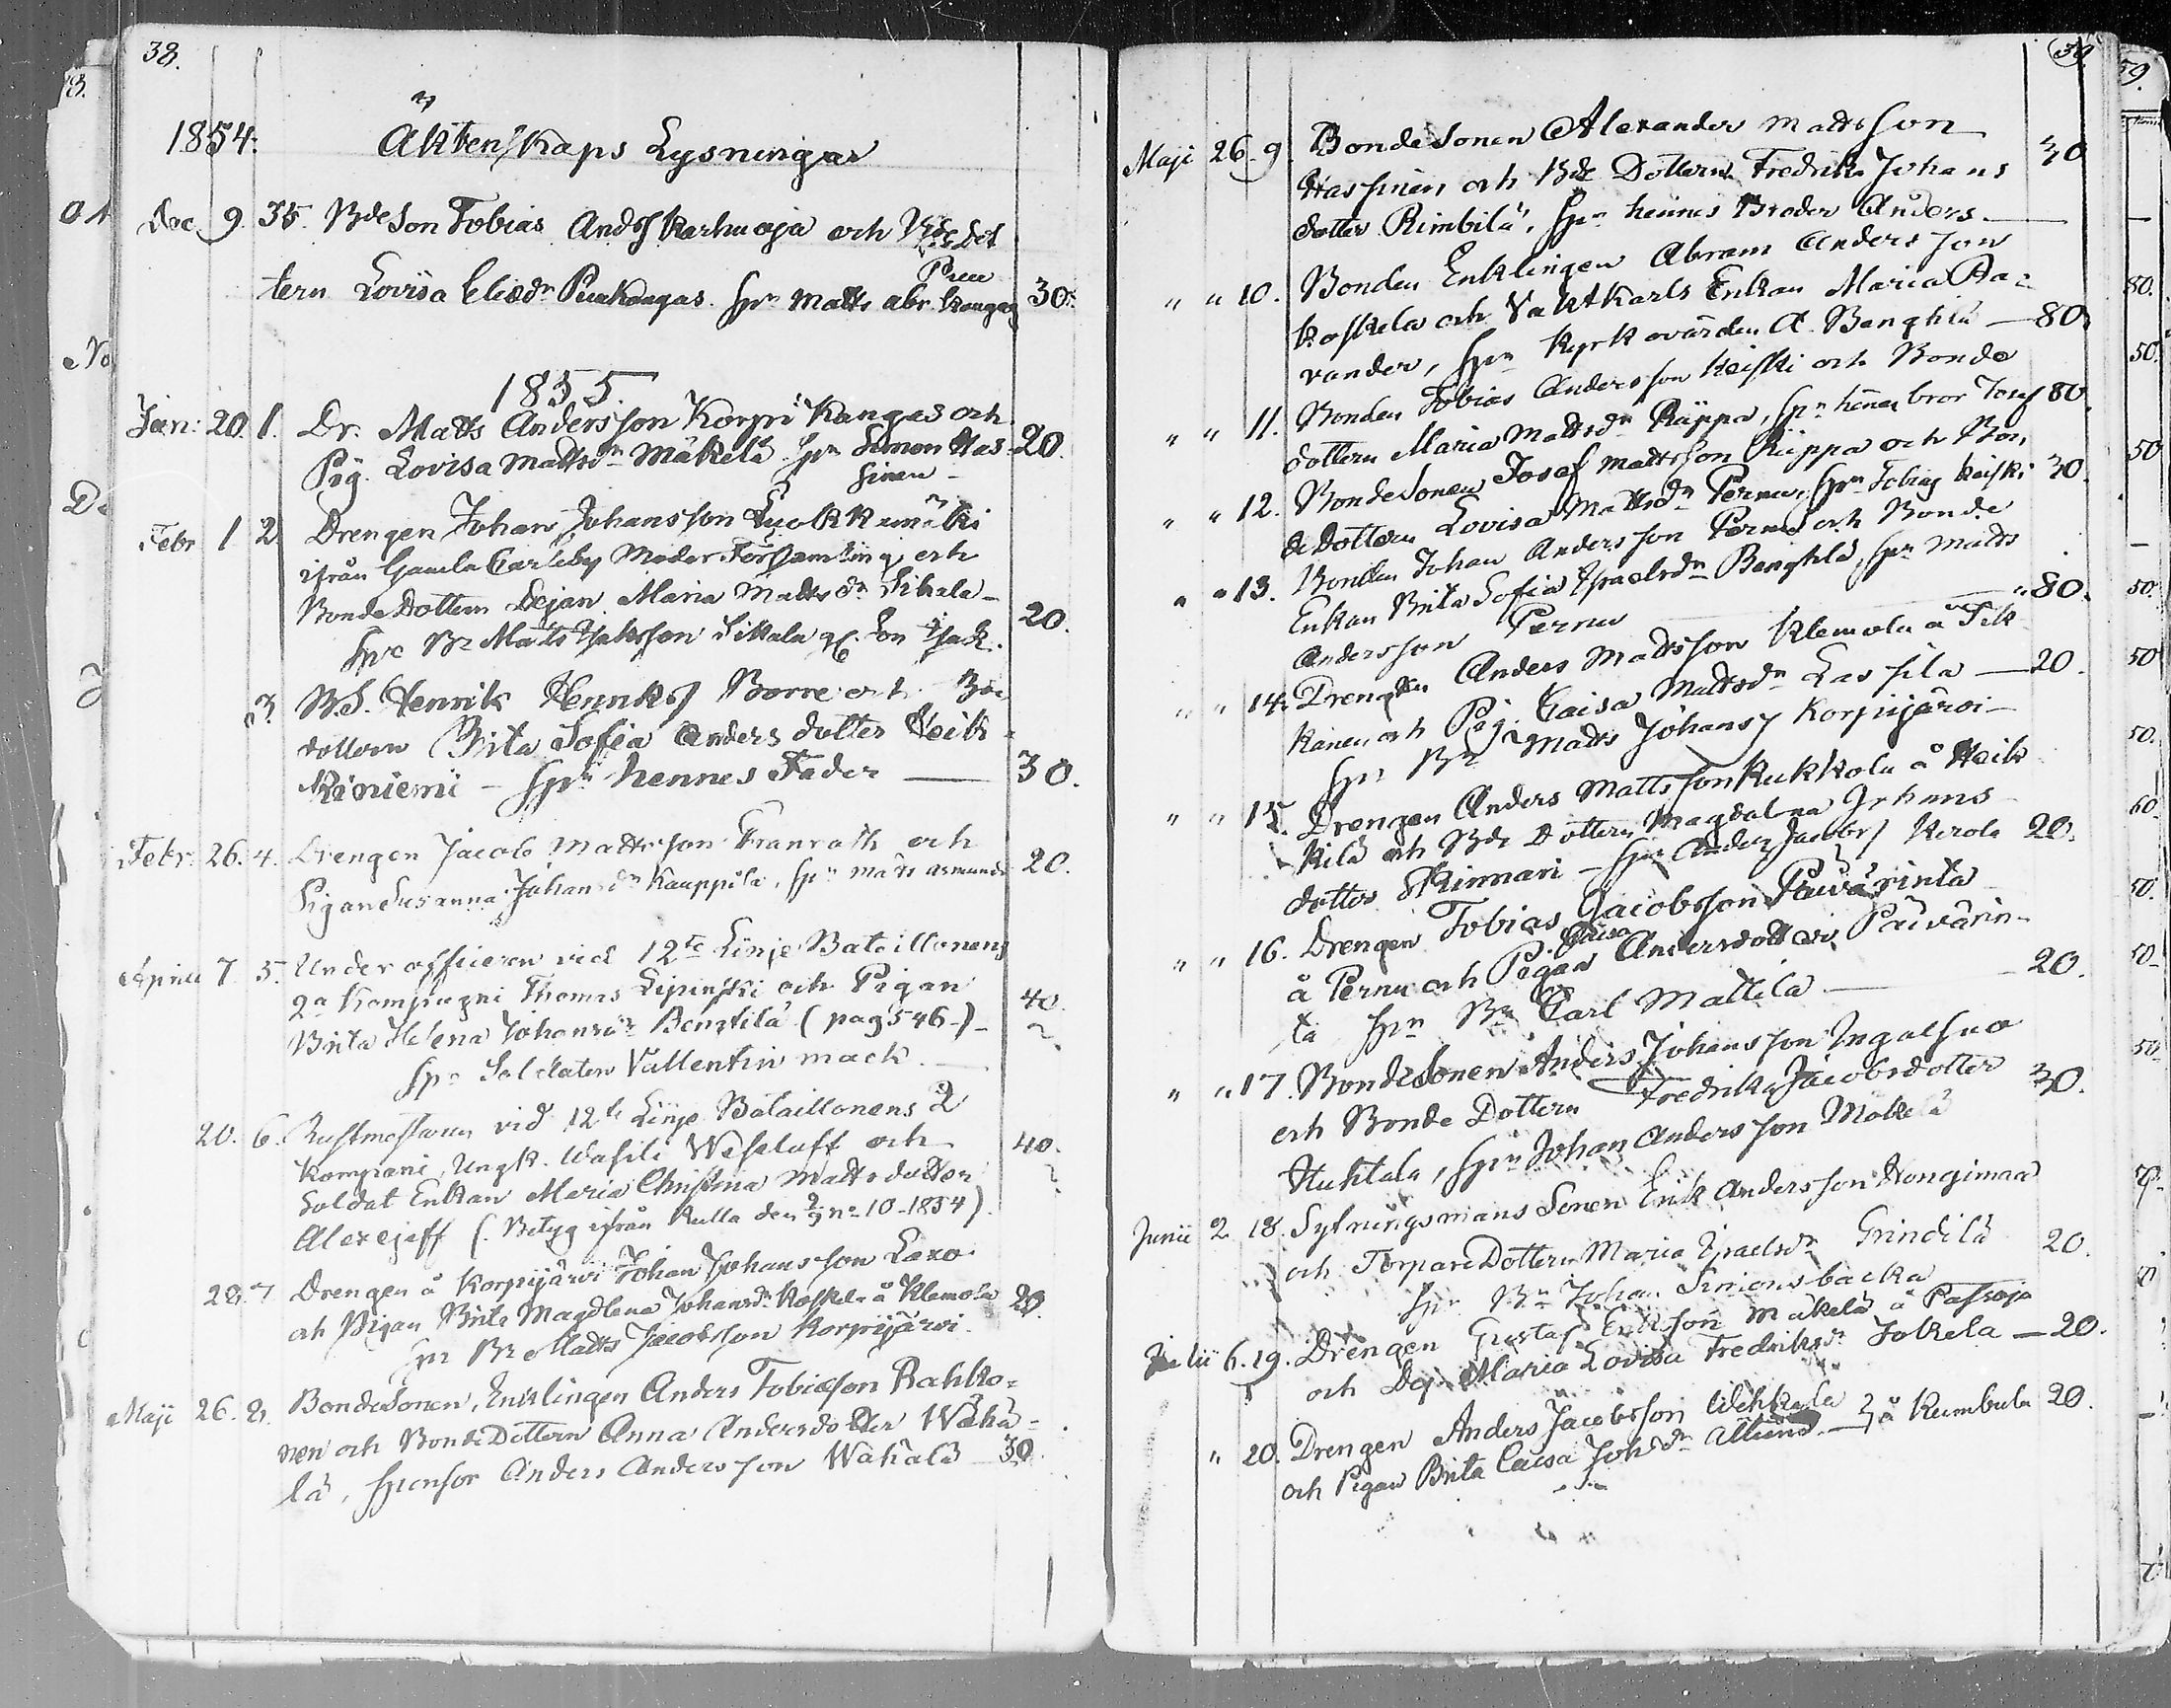 38.
1854. Äktenskaps Lysningar
Dec. 9. 35. Bdeson Tobias Andsſ Karhuoja och Bdedot
tern Lovisa Eliædr Puukangas. Spr Matts Abr. Kangas 30.
Puu
1855.
Jan: 20. 1. Dr. Matts Andersson Korpi Kangas och
Pig. Lovisa Mattsdr Mäkelä. Spr Simon Has- 20.
sinen -
Febr 1 2 Drengen Johan Johansson Luokkamäki
ifrån Gamla Carleby Moder Församling och
Bonde Dottern Dejan Maria Mattsdr Sikala - 20.
Spr Br Matts Sikala
3. B.S. Henrik Henriksſ Borre och Bde
dottern Brita Sofia Anders dotter Heik
kiniemi - Spr hennes Fader — 30.
Febr. 26. 4. Drengen Jacob Mattsson Franrath och
Pigan Susanna Johansdr Kauppila, Spr Matts Asmunds 20.
Aprill 7. 5. Underofficeren vid 12te Linje Bataillonens
2a Kompagni Thomas Lipinski och Pigan 40.
Brita Helena Johansdr Bengtilä (pag 546-)-
Spr Soldaten Vallentin Mack. —
20. 6. Rustmestaren vid 12te Linje Bataillonens 2
Kompani, Ungk. Wasili Wesseluff och 40.
Soldat Enkan Maria Christina Mattsdotter
Alexejeff (. Betyg ifrån Kulla den no 10-1854).
28. 7 Drengen å Korpijärvi Johan Johansson Laxo
och Pigan Brita Magdlena Johansdr Koskela å Klemola 20.
Spr Br Matts Jacobsson Korpijärvi.
Maji 26. 8. Bondesonen, Enklingen Anders Tobiasson Rahko-
nen och Bonde Dottern Anna Andersdotter Wähä-
lä, Sponsor Anders Andersson Wähälä 30.
39.
Maji 26. 9. Bondesonen Alexander Mattsson 30
Hassinen och Bde Dottern Fredrika Johans
dotter Rimbilä, Spr hennes Broder Anders —
" " 10. Bonden Enklingen Abram Andersson
Koskela och Vaktkarls Enkan Maria Ra-
vander, Spr Kyrkovärden A. Bengtilä — 80.
" " 11. Bonden Tobias Andersson Keiski och Bonde
dottern Maria Mattsdr Räppa, Spr hennes bror Josef 80.
" " 12. Bondesonen Josef Mattsson Räppa och Bon,
de Dottern Lovisa Mattsdr Pernu, Spr Tobias Keiski 30.
" " 13. Bonden Johan Andersson Pernu och Bonde
Enkan Brita Sofia Israelsdr Bengtilä, Spr Matts
Andersson Pernu — 80.
" " 14. Drengen Anders Mattsson Klemola å Tik
kanen och Pig. Caisa Mattsdr Lassila — 20.
Spr Br Matts Johansſ Korpijärvi —
" " 15. Drengen Anders Mattsson Kukkola å Heik
kilä och Bde Dottern Magdalena Johans
dotter Skinnari - Spr Anders Jacobsſ Kerola 20.
" " 16. Drengen Tobias Jacobsson Päivärinta
å Pernu och Pigan Caisa Andersdotter Päivärin-
ta Spr Br Carl Mattila — 20.
" " 17. Bondesonen Anders Johansson Ingalsuo
och Bonde Dottern Fredrika Jacobsdotter 30.
Huhtala, Spr Johan Andersson Mäkelä
Junii 2 18. Sytningsmans Sonen Erik Andersson Hongimaa
och Torpare Dottern Maria Israelsdr Grindilä 20.
Spr Br Johan Simonsbacka
Julii 6. 19. Drengen Gustaf Eriksson Mäkelä å Passoja
och Dej. Maria Lovisa Fredriksdr Jokela — 20.
" 20. Drengen Anders Jacobsson
och Pigan Brita Caisa Johsdr Ahlund — å Kumbula 20.